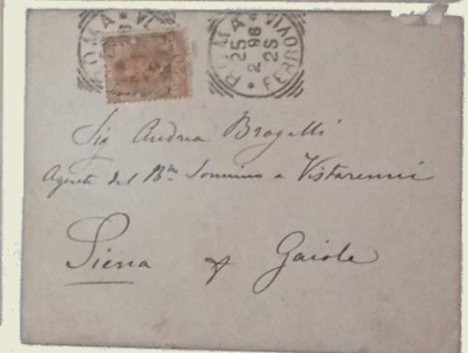 ROMA
ROMA FERROVIA
25
2 98
2S
Sig Andrea Brogelli
Agente del Bne Sonnino a Vistarenni
Siena p Gaiole